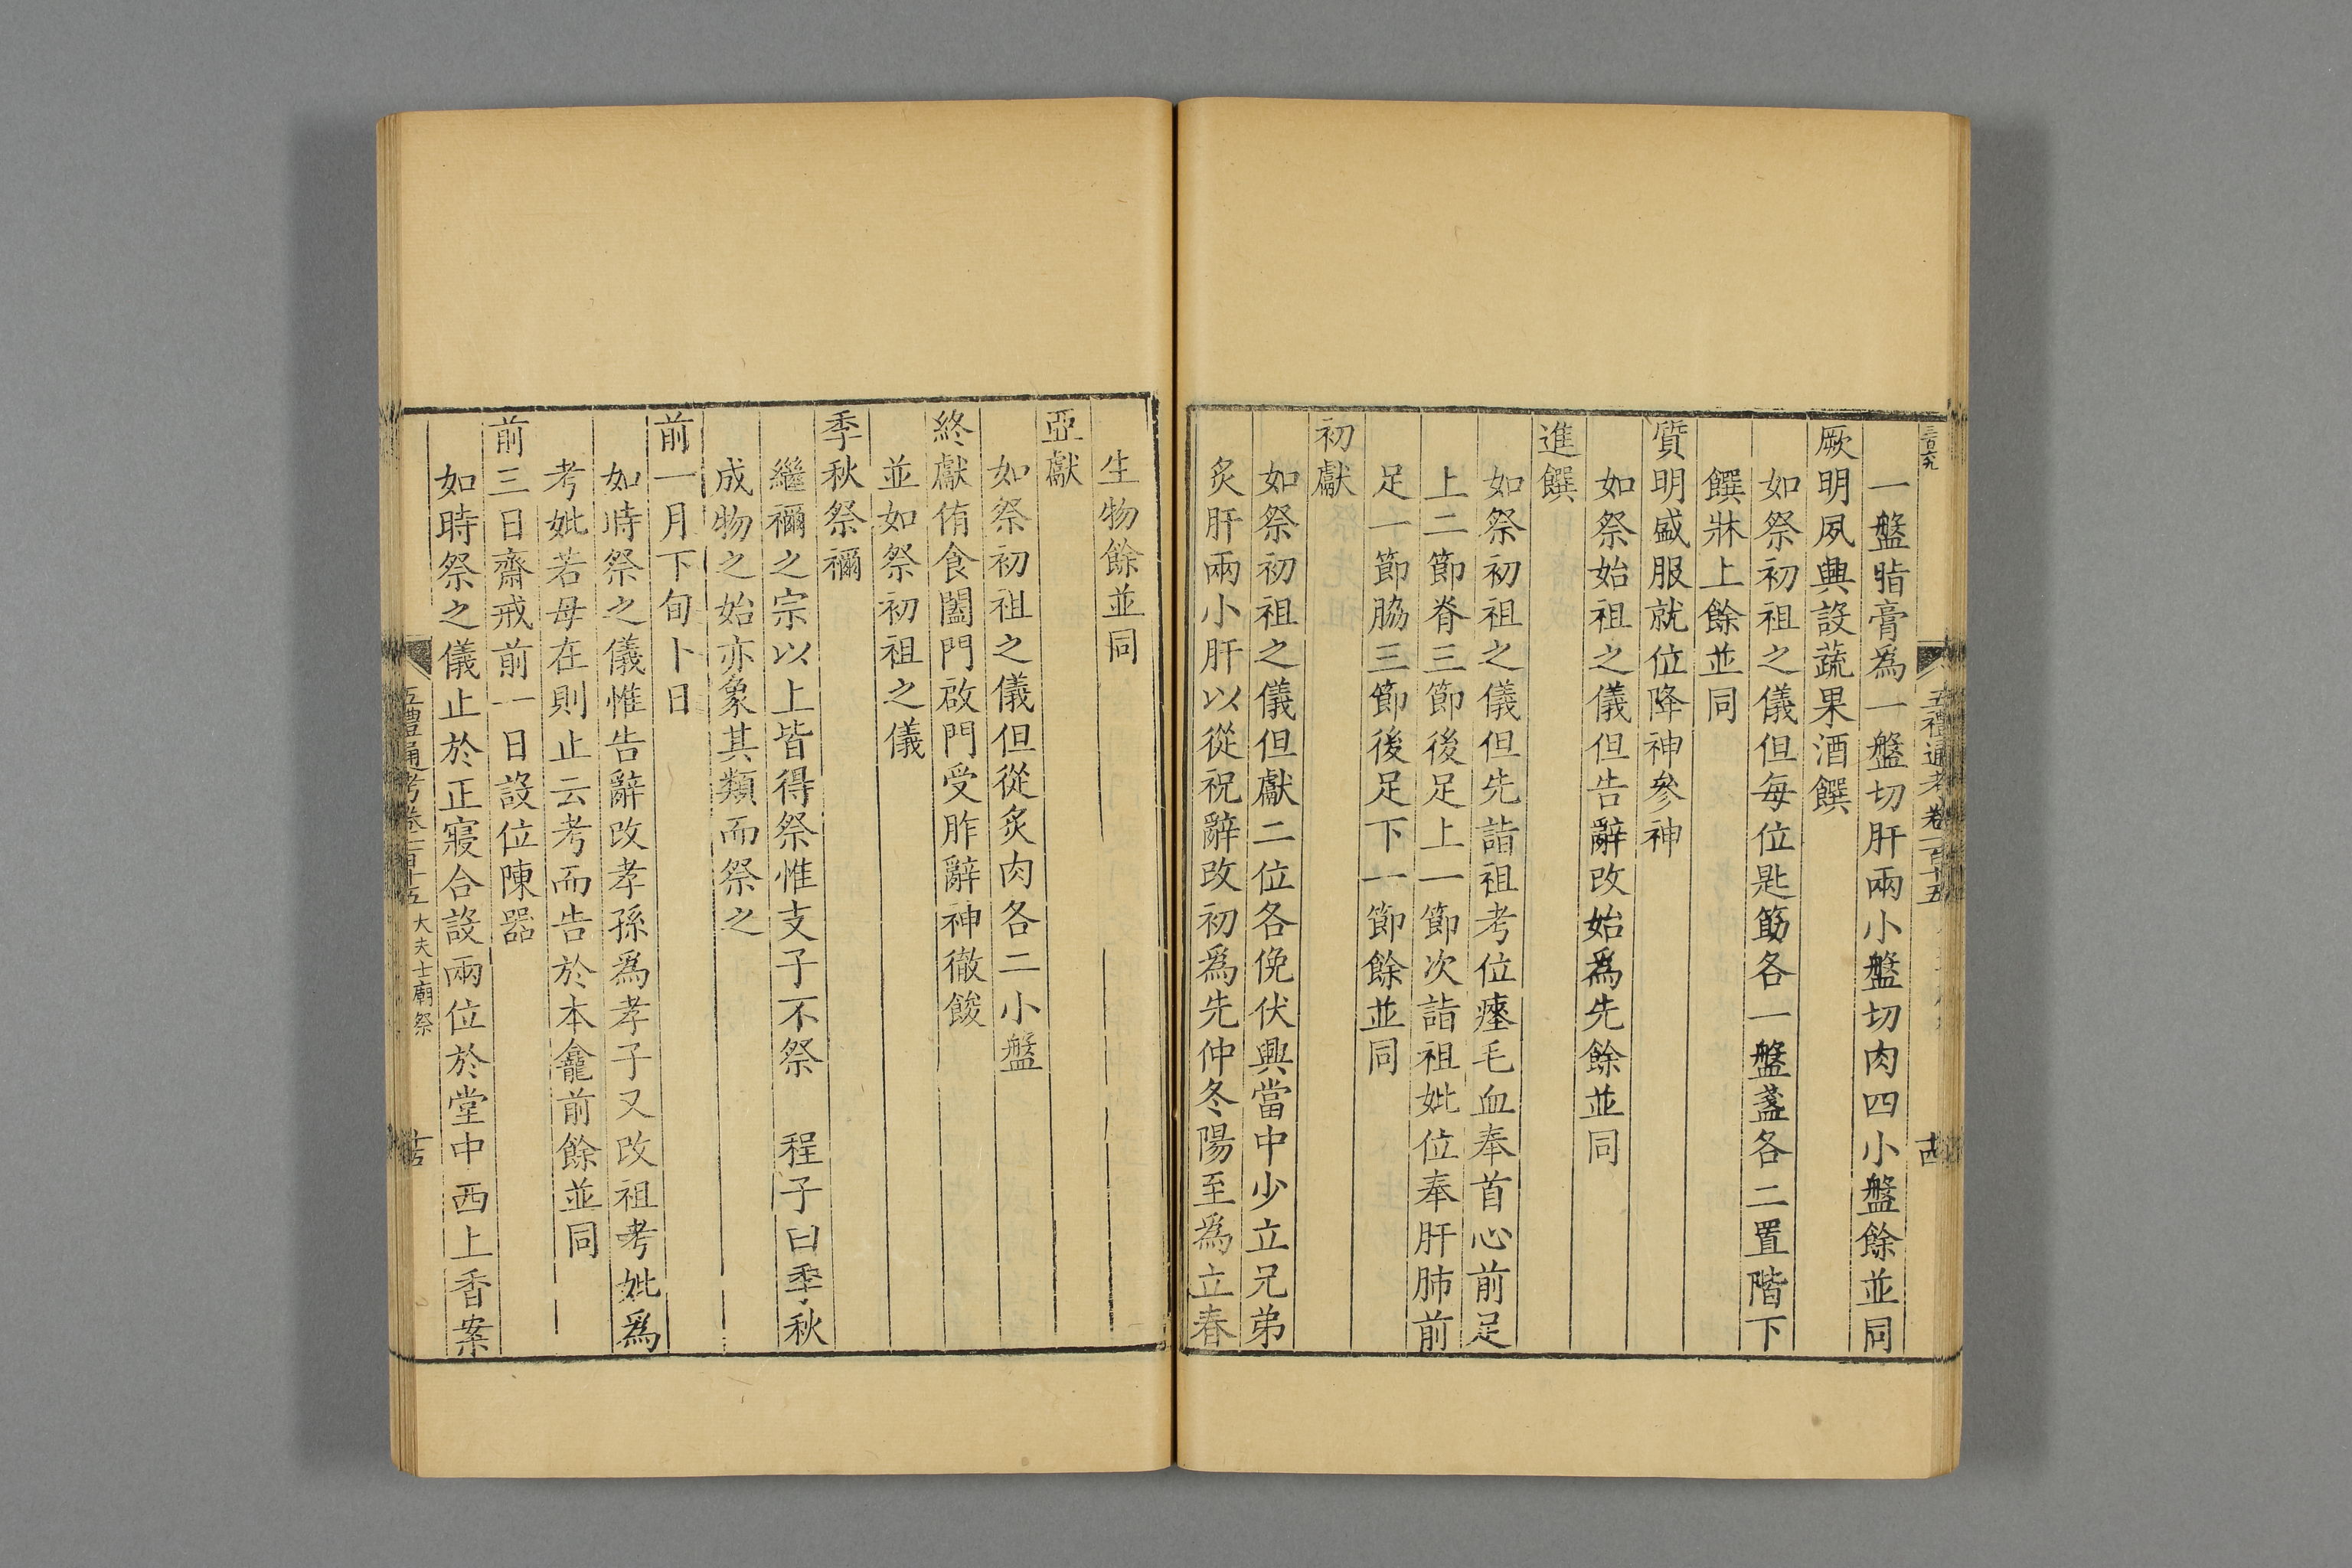 一盤脂膏爲一盤切肝兩小盤切肉四小盤餘並同
厥明夙興設蔬果酒饌
如祭初祖之儀但每位匙筯各一盤盞各二置階下
饌牀上餘並同
質明盛服就位降神參神
如祭始祖之儀但告辭改始爲先餘並同
進饌
如祭初祖之儀但先詣祖考位瘞毛血奉首心前足
上二節脊三節後足上一節次詣祖妣位奉肝肺前
足一節脇三節後足下一節餘並同
初獻
如祭初祖之儀但獻二位各俛伏興當中少立兄弟
炙肝兩小肝以從祝辭改初爲先仲冬陽至爲立春
生物餘並同
亞獻
如祭初祖之儀但從炙肉各二小盤
終獻侑食闔門啟門受胙辭神徹餕
並如祭初祖之儀
季秋祭禰
繼禰之宗以上皆得祭惟支子不祭　程子曰季秋
成物之始亦象其類而祭之
前一月下旬卜日
如時祭之儀惟告辭改孝孫爲孝子又改祖考妣爲
考妣若母在則止云考而告於本龕前餘並同
前三日齋戒前一日設位陳器
如時祭之儀止於正寢合設兩位於堂中西上香案
五禮通考卷一百十五　大夫士廟祭